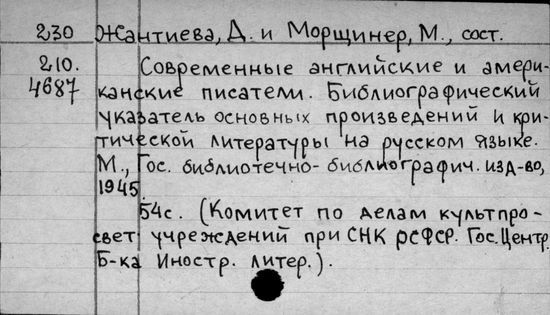 230 Жантиева, Д. и Морщинер, М., сост.
210. Современные английские и амери-
4687 канские писатели. Библиографический
указатель основных произведений и кри-
тической литературы на русском языке.
М., Гос. библиотечно-библиографич. изд-во,
1945
54с. (Комитет по делам культпро-
свет учреждений при СНК РСФСР. Гос. Центр.
Б-ка Иностр. литер.).